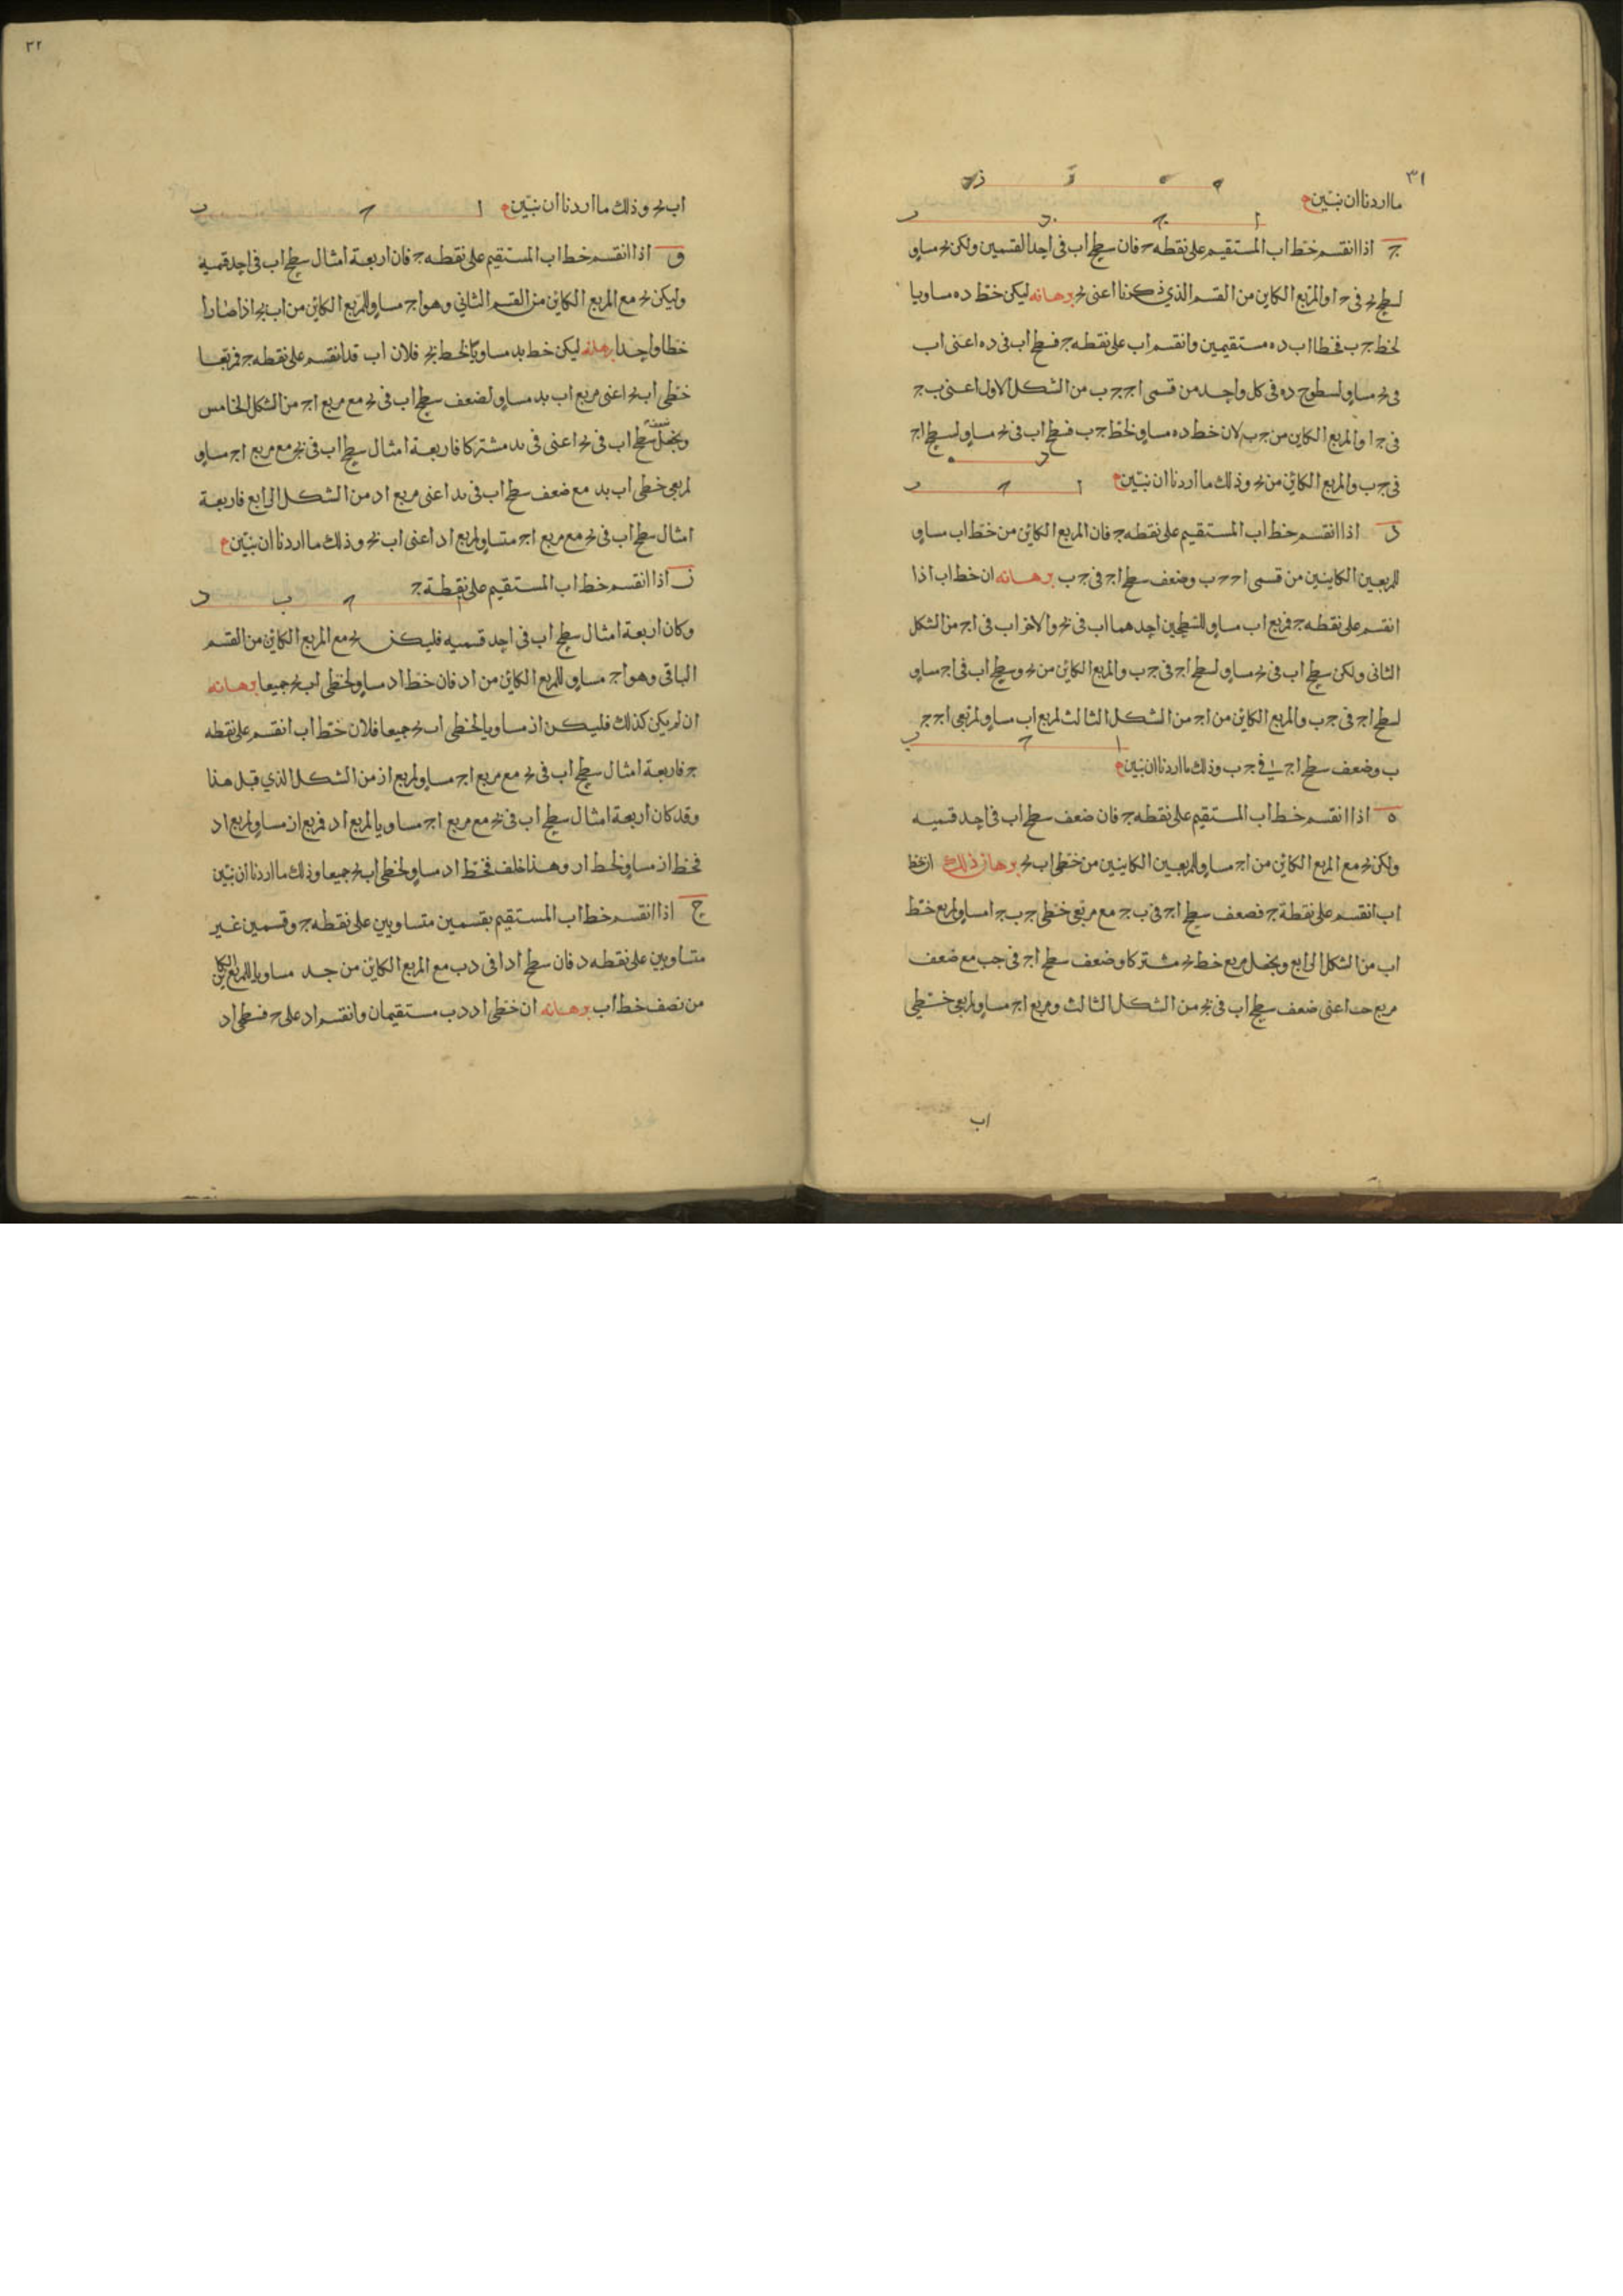 ٣١
ما اردنا ان نبين
ج اذا انقسم خط اب المستقيم على نقطه ح فان سطح اب فى احد القسمين ولكن بج مساو
لسطح بج فى ج ا والمربع الكاين من القسم الذي ذكرنا اعنى بج برهانه ليكن خط ده مساويا
لخط ج ب فخطا اب ده مستقيمين وانقسم اب على نقطه ج فسطح اب فى ده اعنى اب
فى بج مساو لسطوح ده فى كل واحد من قسمى اج ج ب من الشكل الاول اعنى ب ج
فى ج ا والمربع الكاين من ج ب لان خط ده مساو لخط ج ب فسطح اب فى بج مساو لسطح اج
فى ج ب والمربع الكائن من بج وذلك ما اردنا ان نبين
د اذا انقسم خط اب المستقيم على نقطه ج فان المربع الكائن من خط اب مساو
للمربعين الكاينين من قسمى اح ح ب وضعف سطح اج فى ج ب برهانه ان خط اب اذا
انقسم على نقطه ج فمربع اب مساو للسطحين احدهما اب فى بج والاخر اب فى اج من الشكل
الثانى ولكن سطح اب فى بج مساو لسطح اج فى ج ب والمربع الكائن من بج وسطح اب فى اج مساو
لسطح اج فى ج ب والمربع الكائن من اج من الشكل الثالث لمربع اب مساو لمربعى اج ج
ب وضعف سطح اج فى ج ب وذلك ما اردنا ان نبين
ه اذا انقسم خط اب المستقيم على نقطه ج فان ضعف سطح اب فى احد قسميه
ولكن بج مع المربع الكائن من اج مساو للمربعين الكاينين من خطى اب بج برهان ذلك ان خط
اب انقسم على نقطة ج فضعف سطح اج فى ب ج مع مربعى خطى ج ب ج ا مساو لمربع خط
اب من الشكل الرابع ويجعل مربع خط بج مشتركا وضعف سطح اج فى جب مع ضعف
مربع حب اعنى ضعف سطح اب فى بج من الشكل الثالث ومربع اج مساو لمربعى خطى
اب
٣٢
اب بج وذلك ما اردنا ان نبين
و اذا انقسم خط اب المستقيم على نقطه ج فان اربعة امثال سطح اب فى احد قسميه
وليكن بج مع المربع الكائن من القسم الثاني وهو اج مساو للمربع الكائن من اب بج اذا صارا
خطا واحدا برهانه ليكن خط بد مساويا لخط بج فلان اب قد انقسم على نقطه ج فمربعا
خطى اب بج اعنى مربع اب بد مساو لضعف سطح اب فى بج مع مربع اج من الشكل الخامس
ويجعل سطح اب فى بج اعنى فى بد مشتركا فاربعة امثال سطح اب فى بج مع مربع اج مساو
لمربعى خطى اب بد مع ضعف سطح اب فى بد اعنى مربع اد من الشكل الرابع فاربعة
امثال سطح اب فى بج مع مربع اج متساو لمربع اد اعنى اب بج وذلك ما اردنا ان نبين
ز اذا انقسم خط اب المستقيم على نقطة ج
وكان اربعة امثال سطح اب فى احد قسميه فليكن بج مع المربع الكائن من القسم
الباقى وهو اج مساو للمربع الكائن من اد فان خط اد مساو لخطى اب بج جميعا برهانه
ان لم يكن كذلك فليكن از مساويا لخطى اب بج جميعا فلان خط اب انقسم على نقطه
ج فاربعة امثال سطح اب فى بج مع مربع اج مساو لمربع از من الشكل الذي قبل هذا
وقد كان اربعة امثال سطح اب فى بج مع مربع اج مساويا لمربع اد فمربع از مساو لمربع اد
فخط از مساو لخط اد وهذا خلف فخط اد مساو لخطى اب بج جميعا وذلك ما اردنا ان نبين
ح اذا انقسم خط اب المستقيم بقسمين متساويين على نقطه ج وقسمين غير
متساويين على نقطه د فان سطح اد فى دب مع المربع الكائن من جد مساويا للمربع الكاين
من نصف خط اب برهانه ان خطى اد دب مستقيمان وانقسم اد على ح فسطح اد